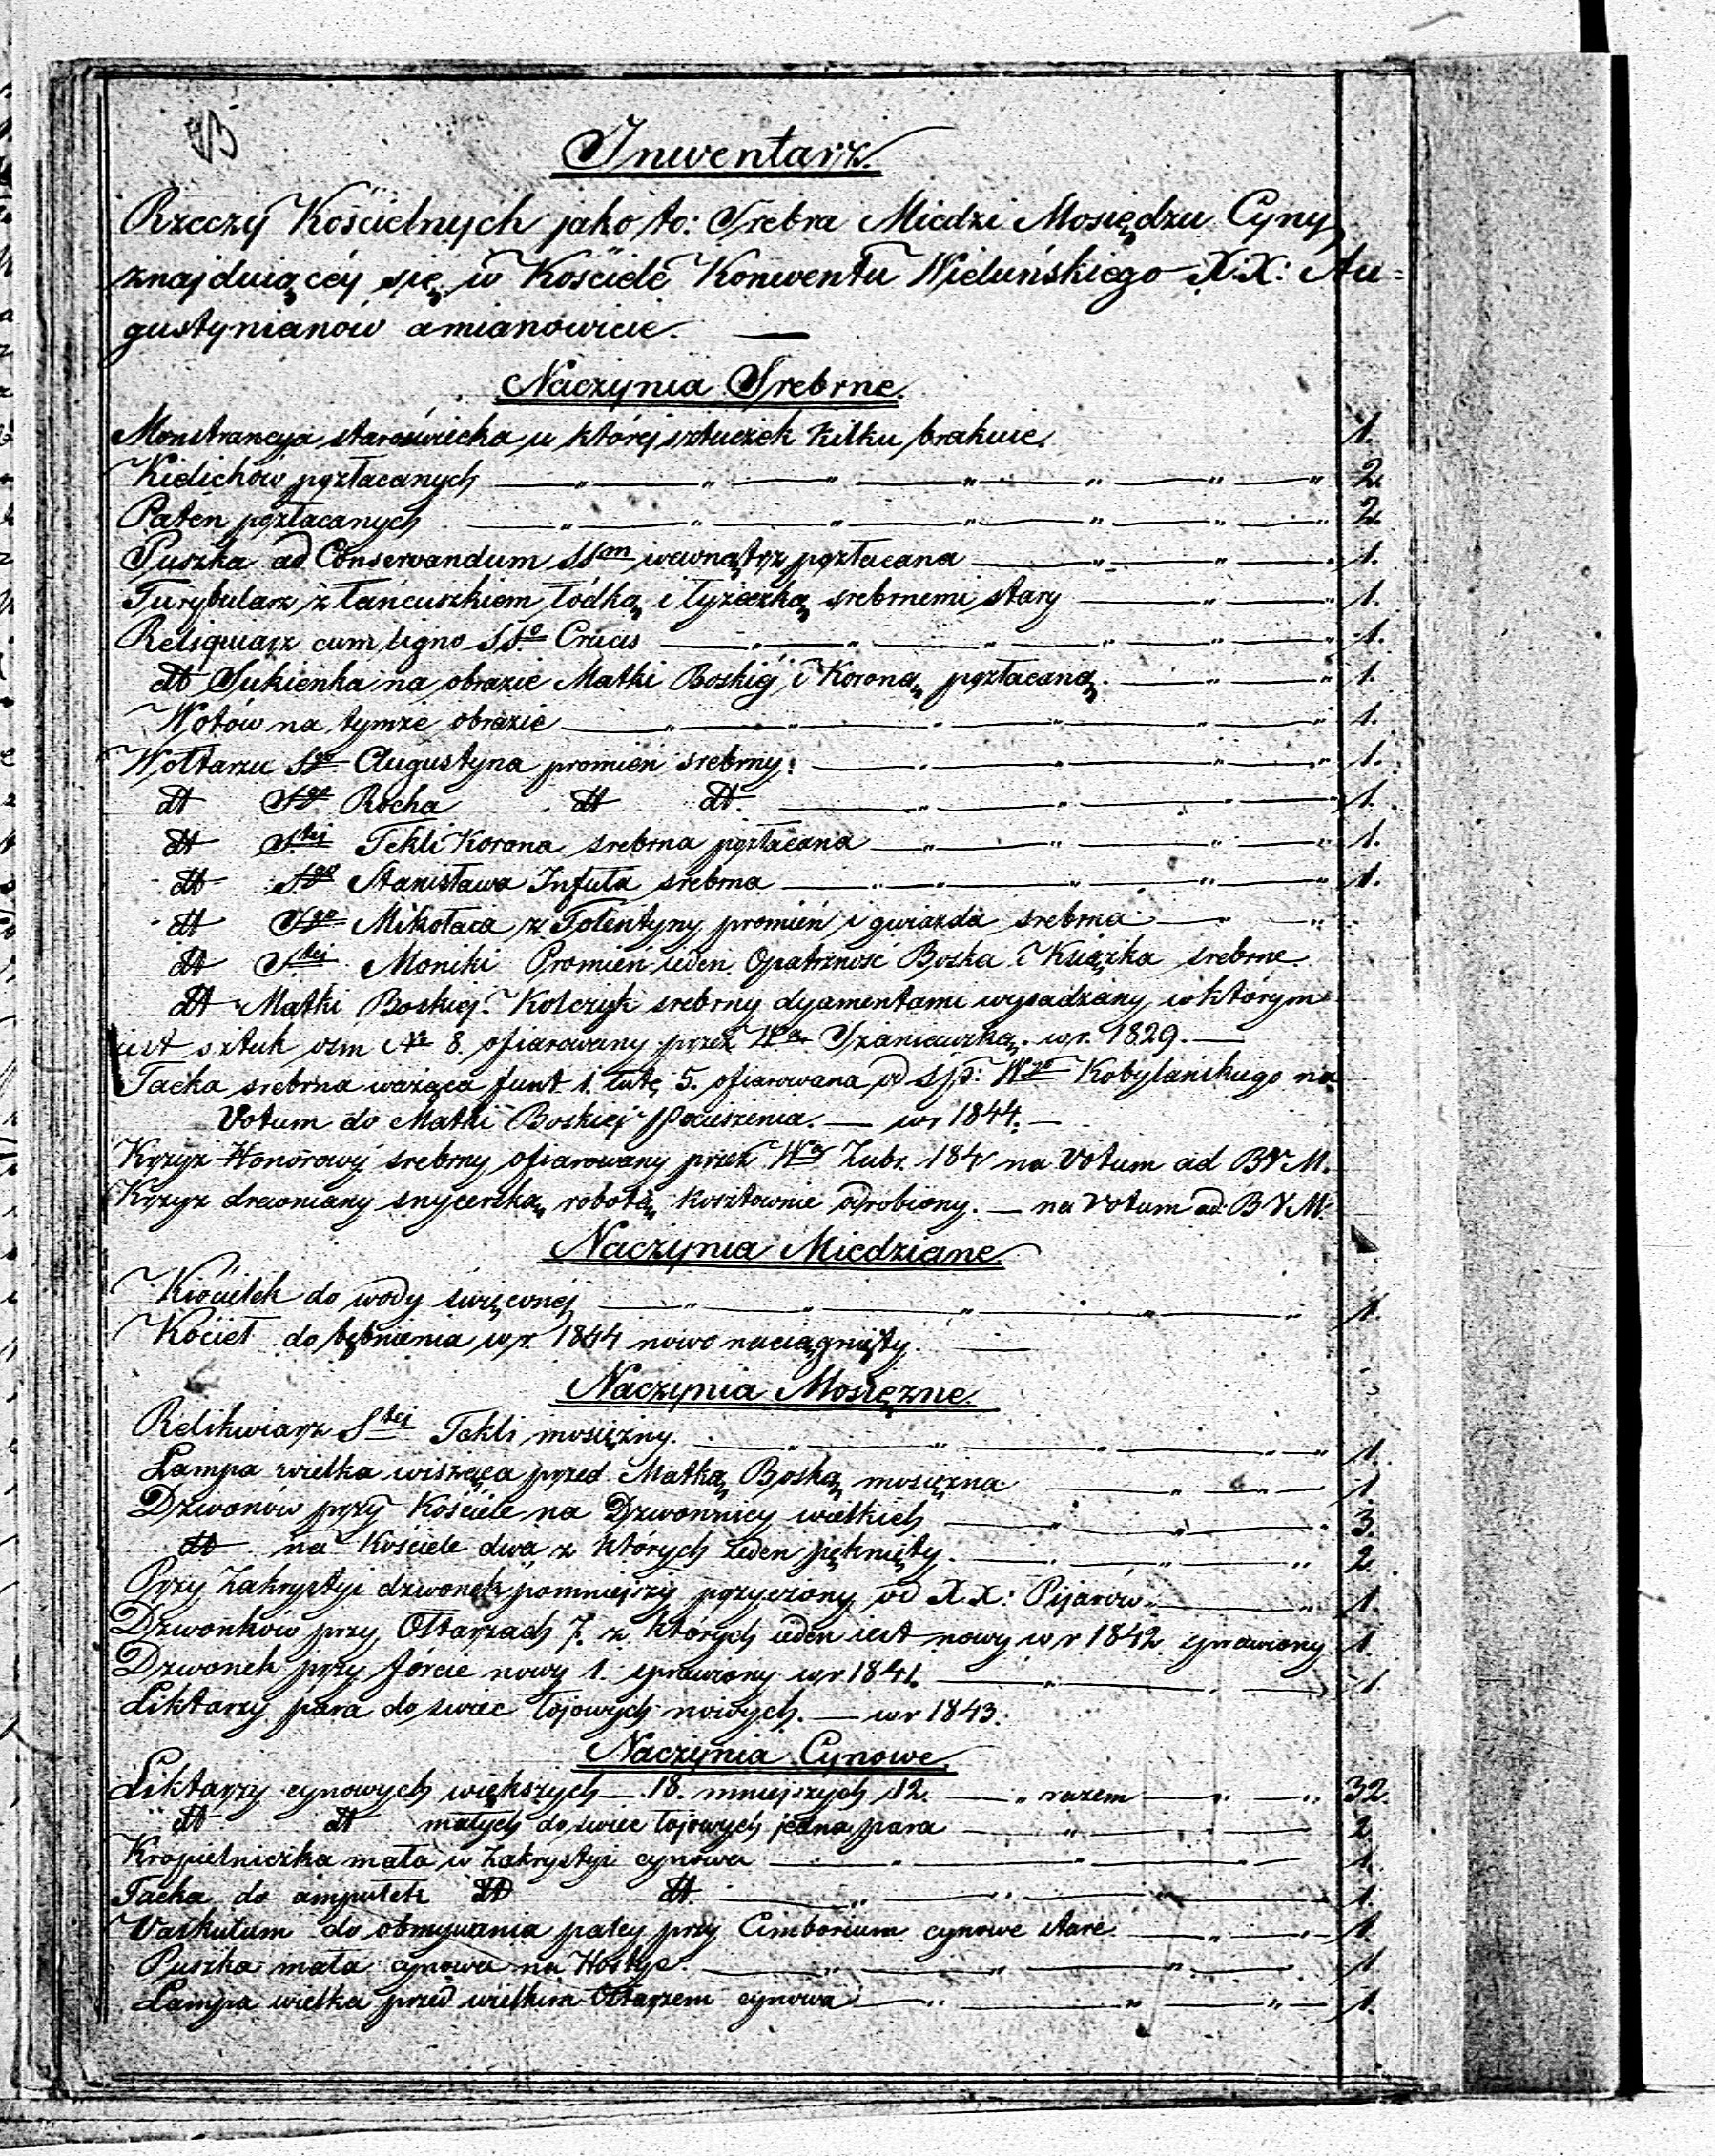 Inwentarz.
Rzeczy Kościelnych jako to: Srebra Miedzi Mosiędzu Cyny
znajduiącéy się w Kościele Konwentu Wieluńskiego X.X: Au=
gustynianów amianowicie. —
Naczynia Srebrne.
Monstrancya staroświecka u któréj sztuczek kilku brakuie. 1.
Kielichów pozłacanych — „ — „ — „ — „ — „ — „ — „ 2
Paten pozłacanych — „ — „ — „ — „ — „ — „ — „ 2.
Puszka ad Conservandum SSm wewnątrz pozłacana — „ — „ 1.
Turybularz z łańcuszkiem łódką i łyżeczką srebrnemi stary — „ — 1.
Reliquiarz cum ligno SS.e Crucis — „ — „ — „ — „ — „ 1.
dt Sukienka na obrazie Matki Boskiéj i Koroną pozłacaną. — „ — „ 1.
Wotów na tymże obrazie — „ — „ — „ — „ — „ 1.
Wołtarzu Sgo Augustyna promień srebrny: — „ — „ — „ — „ 1.
dt Sgo Rocha dt dt. — „ — „ — „ — „ 1.
dt Stéj Tekli Korona srebrna pozłacana — „ — „ — „ — „ 1.
dt Sgo Stanisława Infuła srebrna — „ — „ — „ — „ — „ 1.
dt Sgo Mikołaia z Tolentyny promień i gwiazda srebrna — „ — „
dt Stéi Moniki Promień ieden Opatrzność Boska i Książka srebrne.
dt Matki Boskiej. Kolczyk srebrny dyamentami wysadzany, w którym
iest sztuk ośm No 8. ofiarowany przez Szaniawską. w r. 1829. —
Tacka srebrna ważąca funt 1. łutę 5. ofiarowana od ś.p: Wgo Kobylańskiego na
Votum do Matki Boskiej Pocieszenia. — w r 1844. —
Krzyż Honorowy srebrny ofiarowany przez na Votum ad BVM.
Krzyż drewniany snycerską robotą kosztownie odrobiony. — na Votum ad: BVM.
Naczynia Miedziane.
Kiociełek do wody święconej — „ — „ — „ — „ — „ 1.
Kocieł do bębnienia w r. 1844 nowo naciągnięty. —
Naczynia Mosiężne.
Relikwiarz Stéj Tekli mosiężny. — „ — „ — „ — „ — „ 1.
Lampa wielka wisząca przed Matką Boską mosiężna — „ — „ — 1
Dzwonów przy Kościele na Dzwonnicy wielkich — „ — „ — „ 3.
dt na Kościele dwa z których ieden pęknięty. — „ — „ — „ 2.
Przy Zakrystyi dzwonek pomniejszy pożyczony od X.X: Pijarów. — „ 1.
Dzwonków przy Ołtarzach 7. z których ieden iest nowy w r 1842 sprawiony 1.
Dzwonek przy fórcie nowy 1. sprawiony w r. 1841. — „ — . — 1
Liktarzy para do swiec łojowych nowych. — w r 1843.
Naczynia Cynowe.
Liktarzy cynowych większych — 18. mniejszych 12. — „ razem — „ — „ 32.
dt dt małych do swiec łojowych jedna para — „ — 2
Kropielniczka mała w Zakrystyi cynowa — „ — „ — „ — 1.
Tacka do ampułek dt dt. — „ — „ — „ — 1.
Vaskulum do obmywania palcy przy Cimborium cynowe stare. — „ — 1.
Puszka mała cynowa na Hostye — „ — „ — „ — 1
Lampa wielka przed wielkim Ołtarzem cynowa — „ — „ — „ — 1.